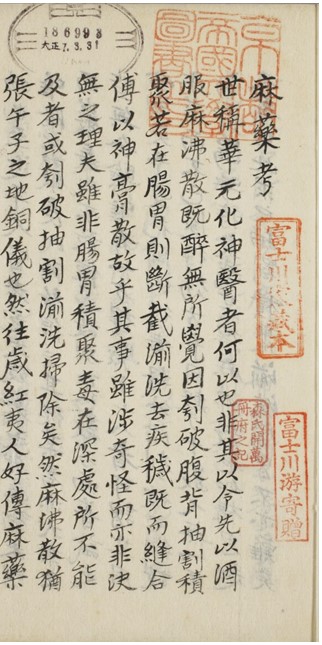 麻藥考
世稱華元化神醫者何以也非其以令先以酒
服麻沸散既醉無所覺因刳破腹背抽割積
聚若在腸胃則斷截湔洗去疾穢既而縫合
傅以神膏散故乎其事雖涉奇怪而亦非決
無之理夫雖非腸胃積聚毒在深處所不能
及者或刳破抽割湔洗掃除矣然麻沸散猶
張午子之地銅儀也然往歲紅夷人好傳麻藥
富士川游藏本
富士川游寄贈
186998
大正7.3.31